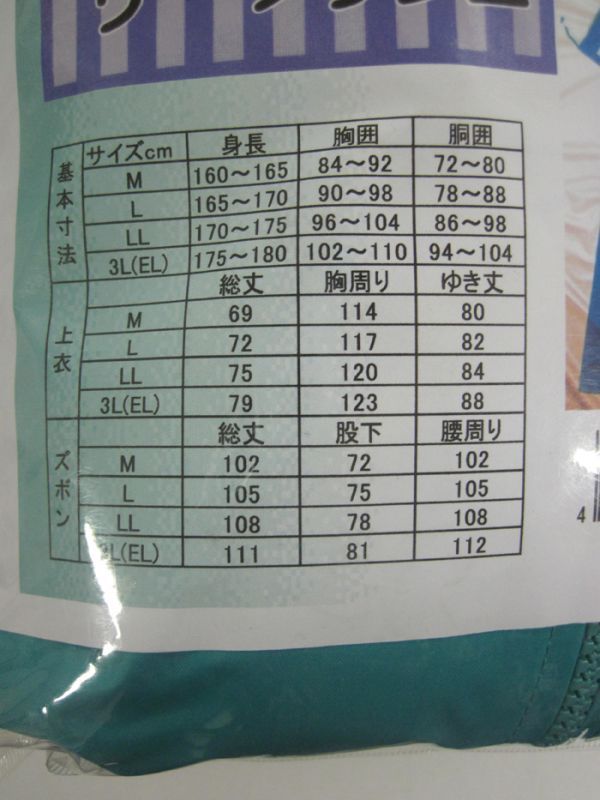 サイズcm 身長 胸囲 胴囲
基本寸法
M 160～165 84～92 72～80
L 165～170 90～98 78～88
LL 170～175 96～104 86～98
3L(EL) 175～180 102～110 94～104
総丈 胸周り ゆき丈
上衣
M 69 114 80
L 72 117 82
LL 75 120 84
3L(EL) 79 123 88
総丈 股下 腰周り
ズボン
M 102 72 102
L 105 75 105
LL 108 78 108
3L(EL) 111 81 112
4